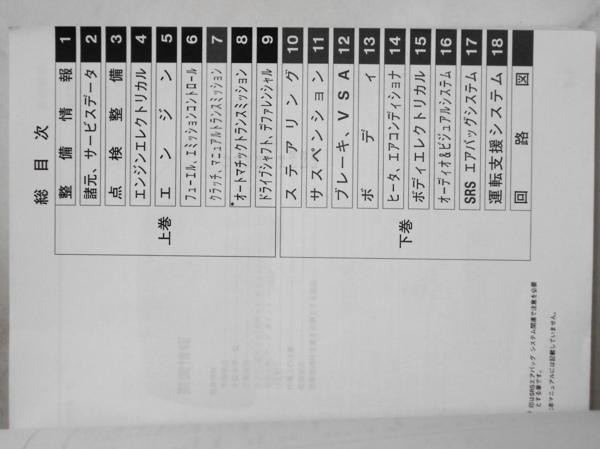 総目次
上巻
整備情報 1
諸元、サービスデータ 2
点検整備 3
エンジンエレクトリカル 4
エンジン 5
フューエル、エミッションコントロール 6
クラッチ、マニュアルトランスミッション 7
*オートマチックトランスミッション 8
ドライブシャフト、デファレンシャル 9
下巻
ステアリング 10
サスペンション 11
ブレーキ、VSA 12
ボディ 13
ヒータ、エアコンディショナ 14
ボディエレクトリカル 15
オーディオ&ビジュアルシステム 16
SRS エアバッグシステム 17
運転支援システム 18
回路図
印はSRSエアバッグ システム関連で注意を必要
とする章です。
本マニュアルには記載していません。